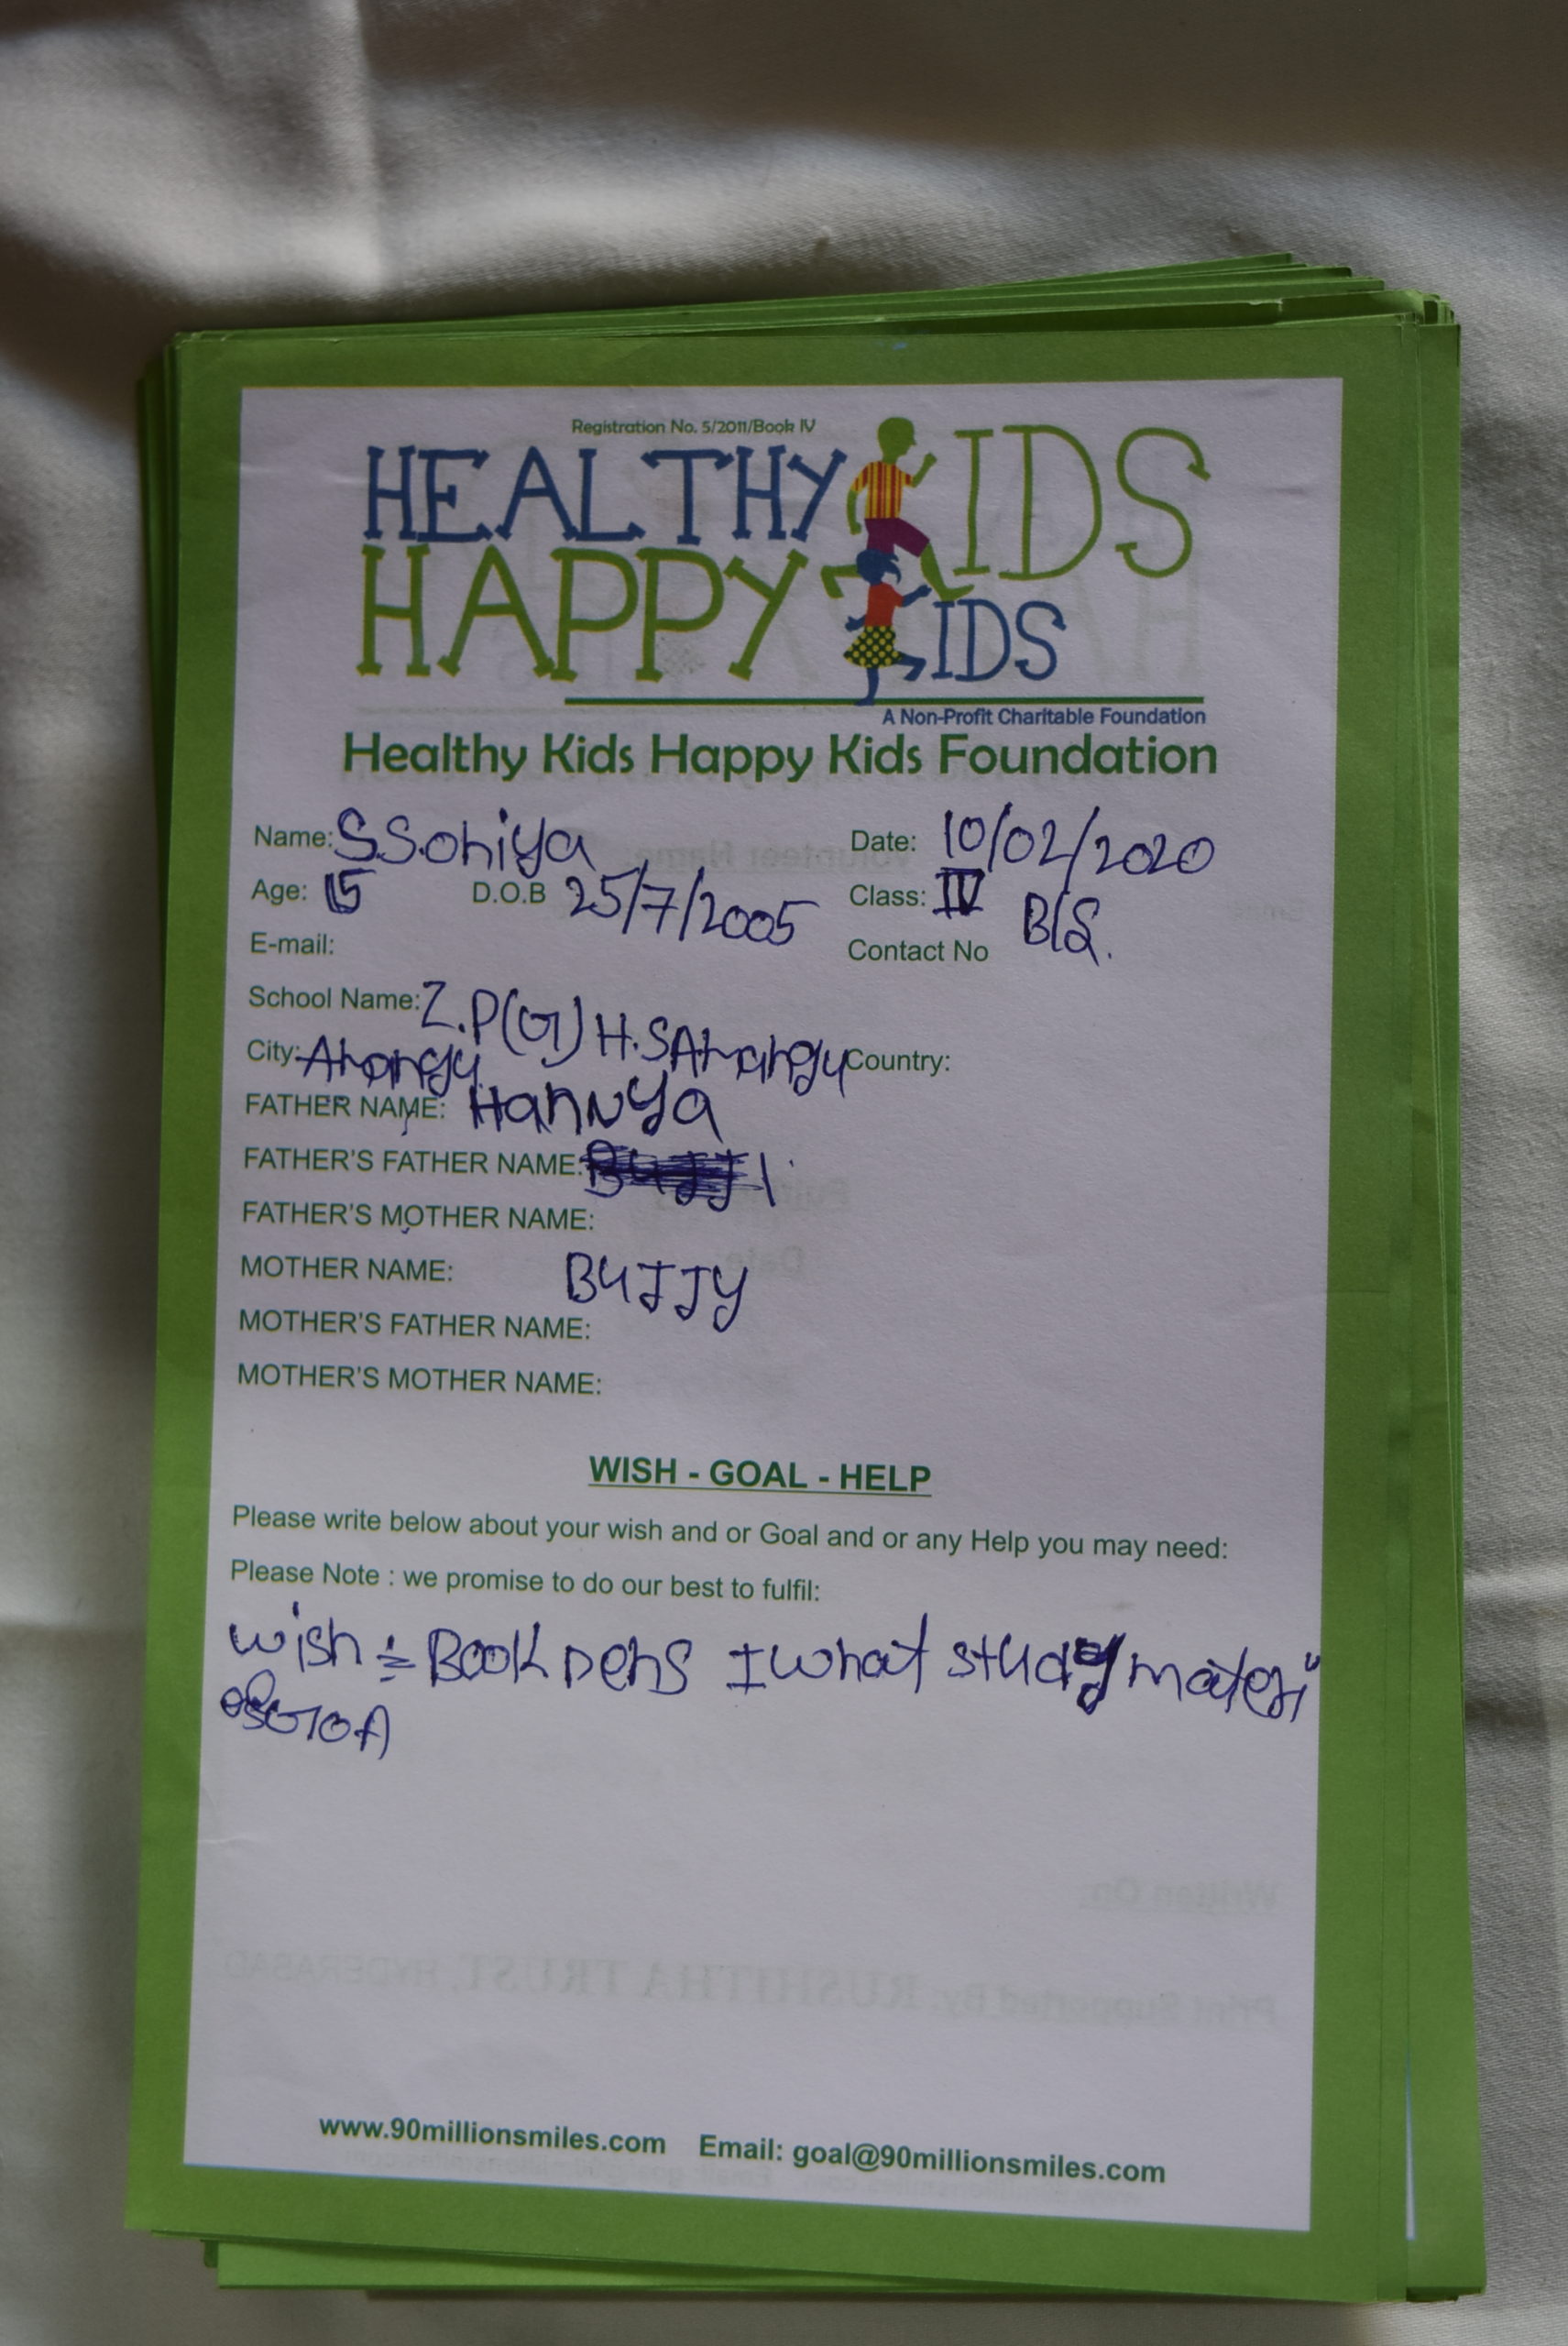 Registration No. 5/2011/Book IV
HEALTHY KIDS
HAPPY KIDS
A Non-Profit Charitable Foundation
Healthy Kids Happy Kids Foundation
Name: S.Soniya Date: 10/02/2020
Age: 15 D.O.B 25/7/2005 Class: IV B/S.
E-mail: Contact No
School Name: Z.P(G) H.S
City: Country:
FATHER NAME:
FATHER'S FATHER NAME:
FATHER'S MOTHER NAME:
MOTHER NAME: BUJJY
MOTHER'S FATHER NAME:
MOTHER'S MOTHER NAME:
WISH - GOAL - HELP
Please write below about your wish and or Goal and or any Help you may need:
Please Note : we promise to do our best to fulfil:
wish Book pens I what study materi
www.90millionsmiles.com Email: goal@90millionsmiles.com